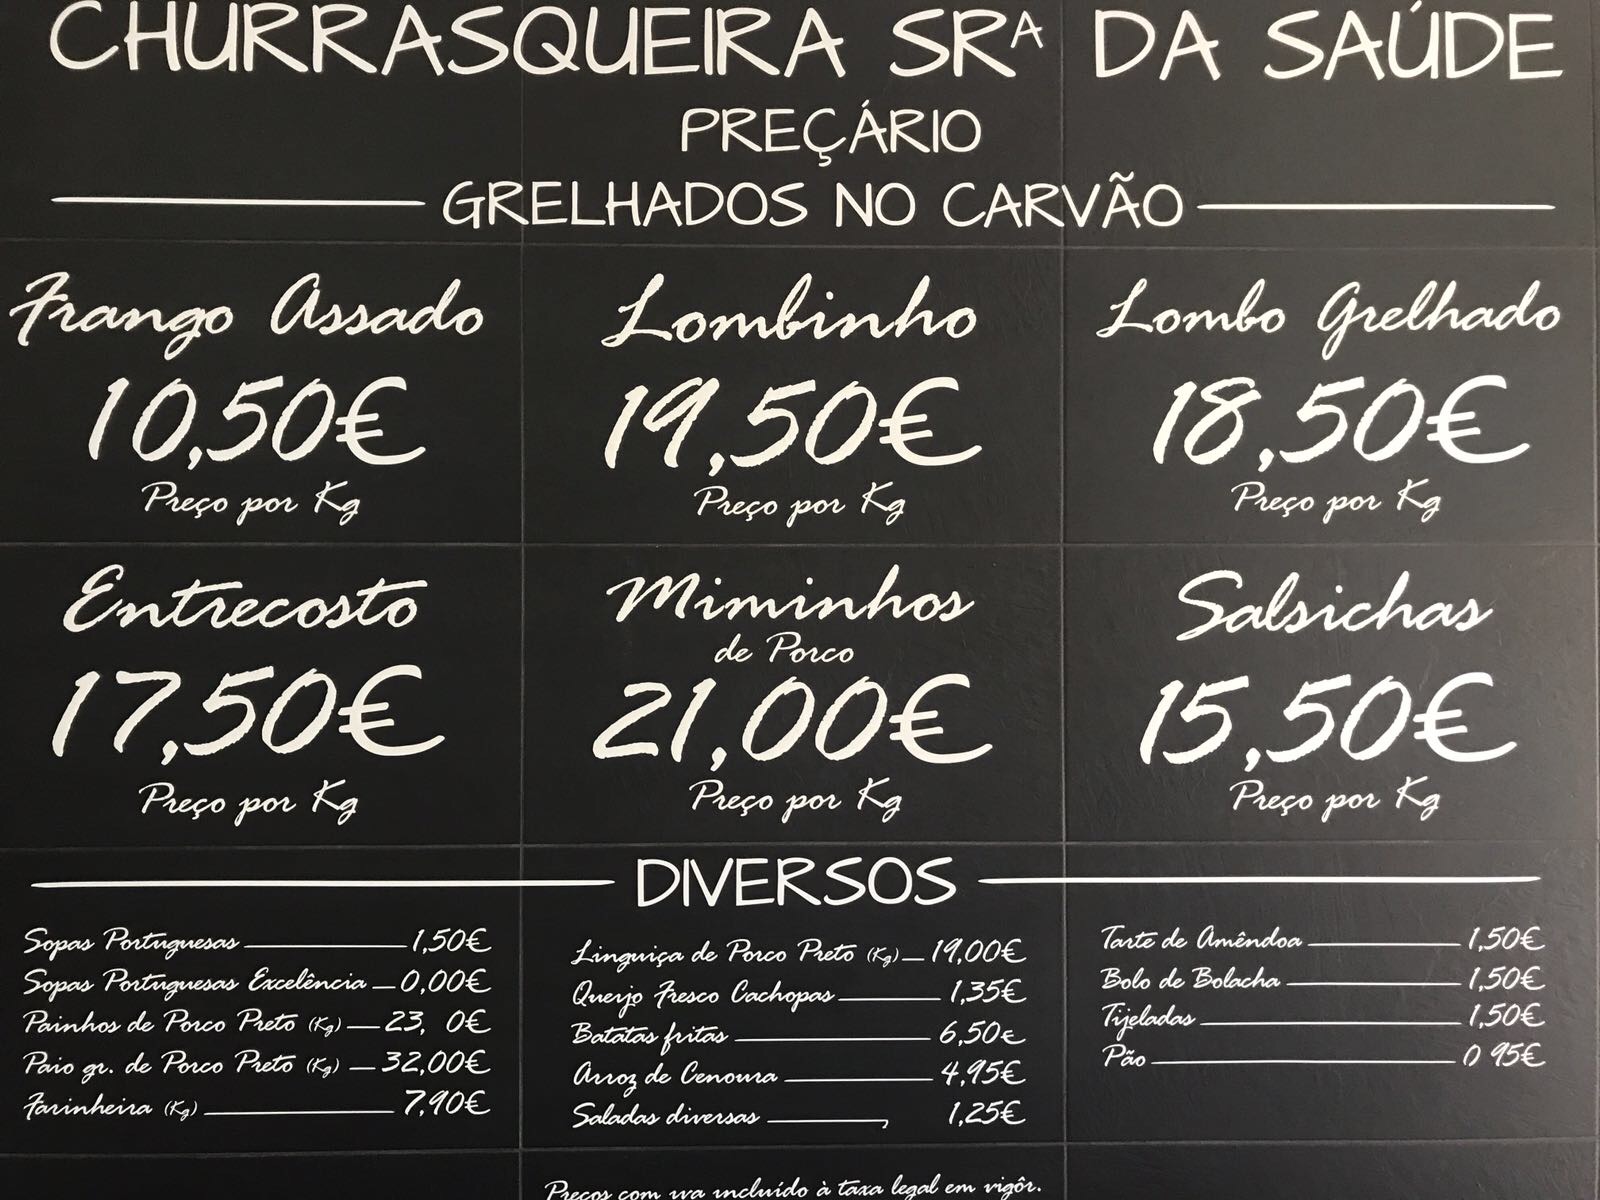 CHURRASQUEIRA SRA DA SAÚDE
PREÇÁRIO
GRELHADOS NO CARVÃO
Frango Assado
10,50€
Preço por Kg
Lombinho
19,50€
Preço por Kg
Lombo Grelhado
18,50€
Preço por Kg
Entrecosto
17,50€
Preço por Kg
Miminhos
de Porco
21,00€
Preço por Kg
Salsichas
15,50€
Preço por Kg
DIVERSOS
Sopas Portuguesas 1,50€
Sopas Portuguesas Excelência 0,00€
Painhos de Porco Preto (Kg) 23, 0€
Paio gr. de Porco Preto (Kg) 32,00€
Farinheira (Kg) 7,90€
Linguiça de Porco Preto (Kg) 19,00€
Queijo Fresco Cachopas 1,35€
Batatas fritas 6,50€
Arroz de Cenoura 4,95€
Saladas diversas 1,25€
Tarte de Amêndoa 1,50€
Bolo de Bolacha 1,50€
Tijeladas 1,50€
Pão 0 95€
Preços com iva incluído à taxa legal em vigôr.